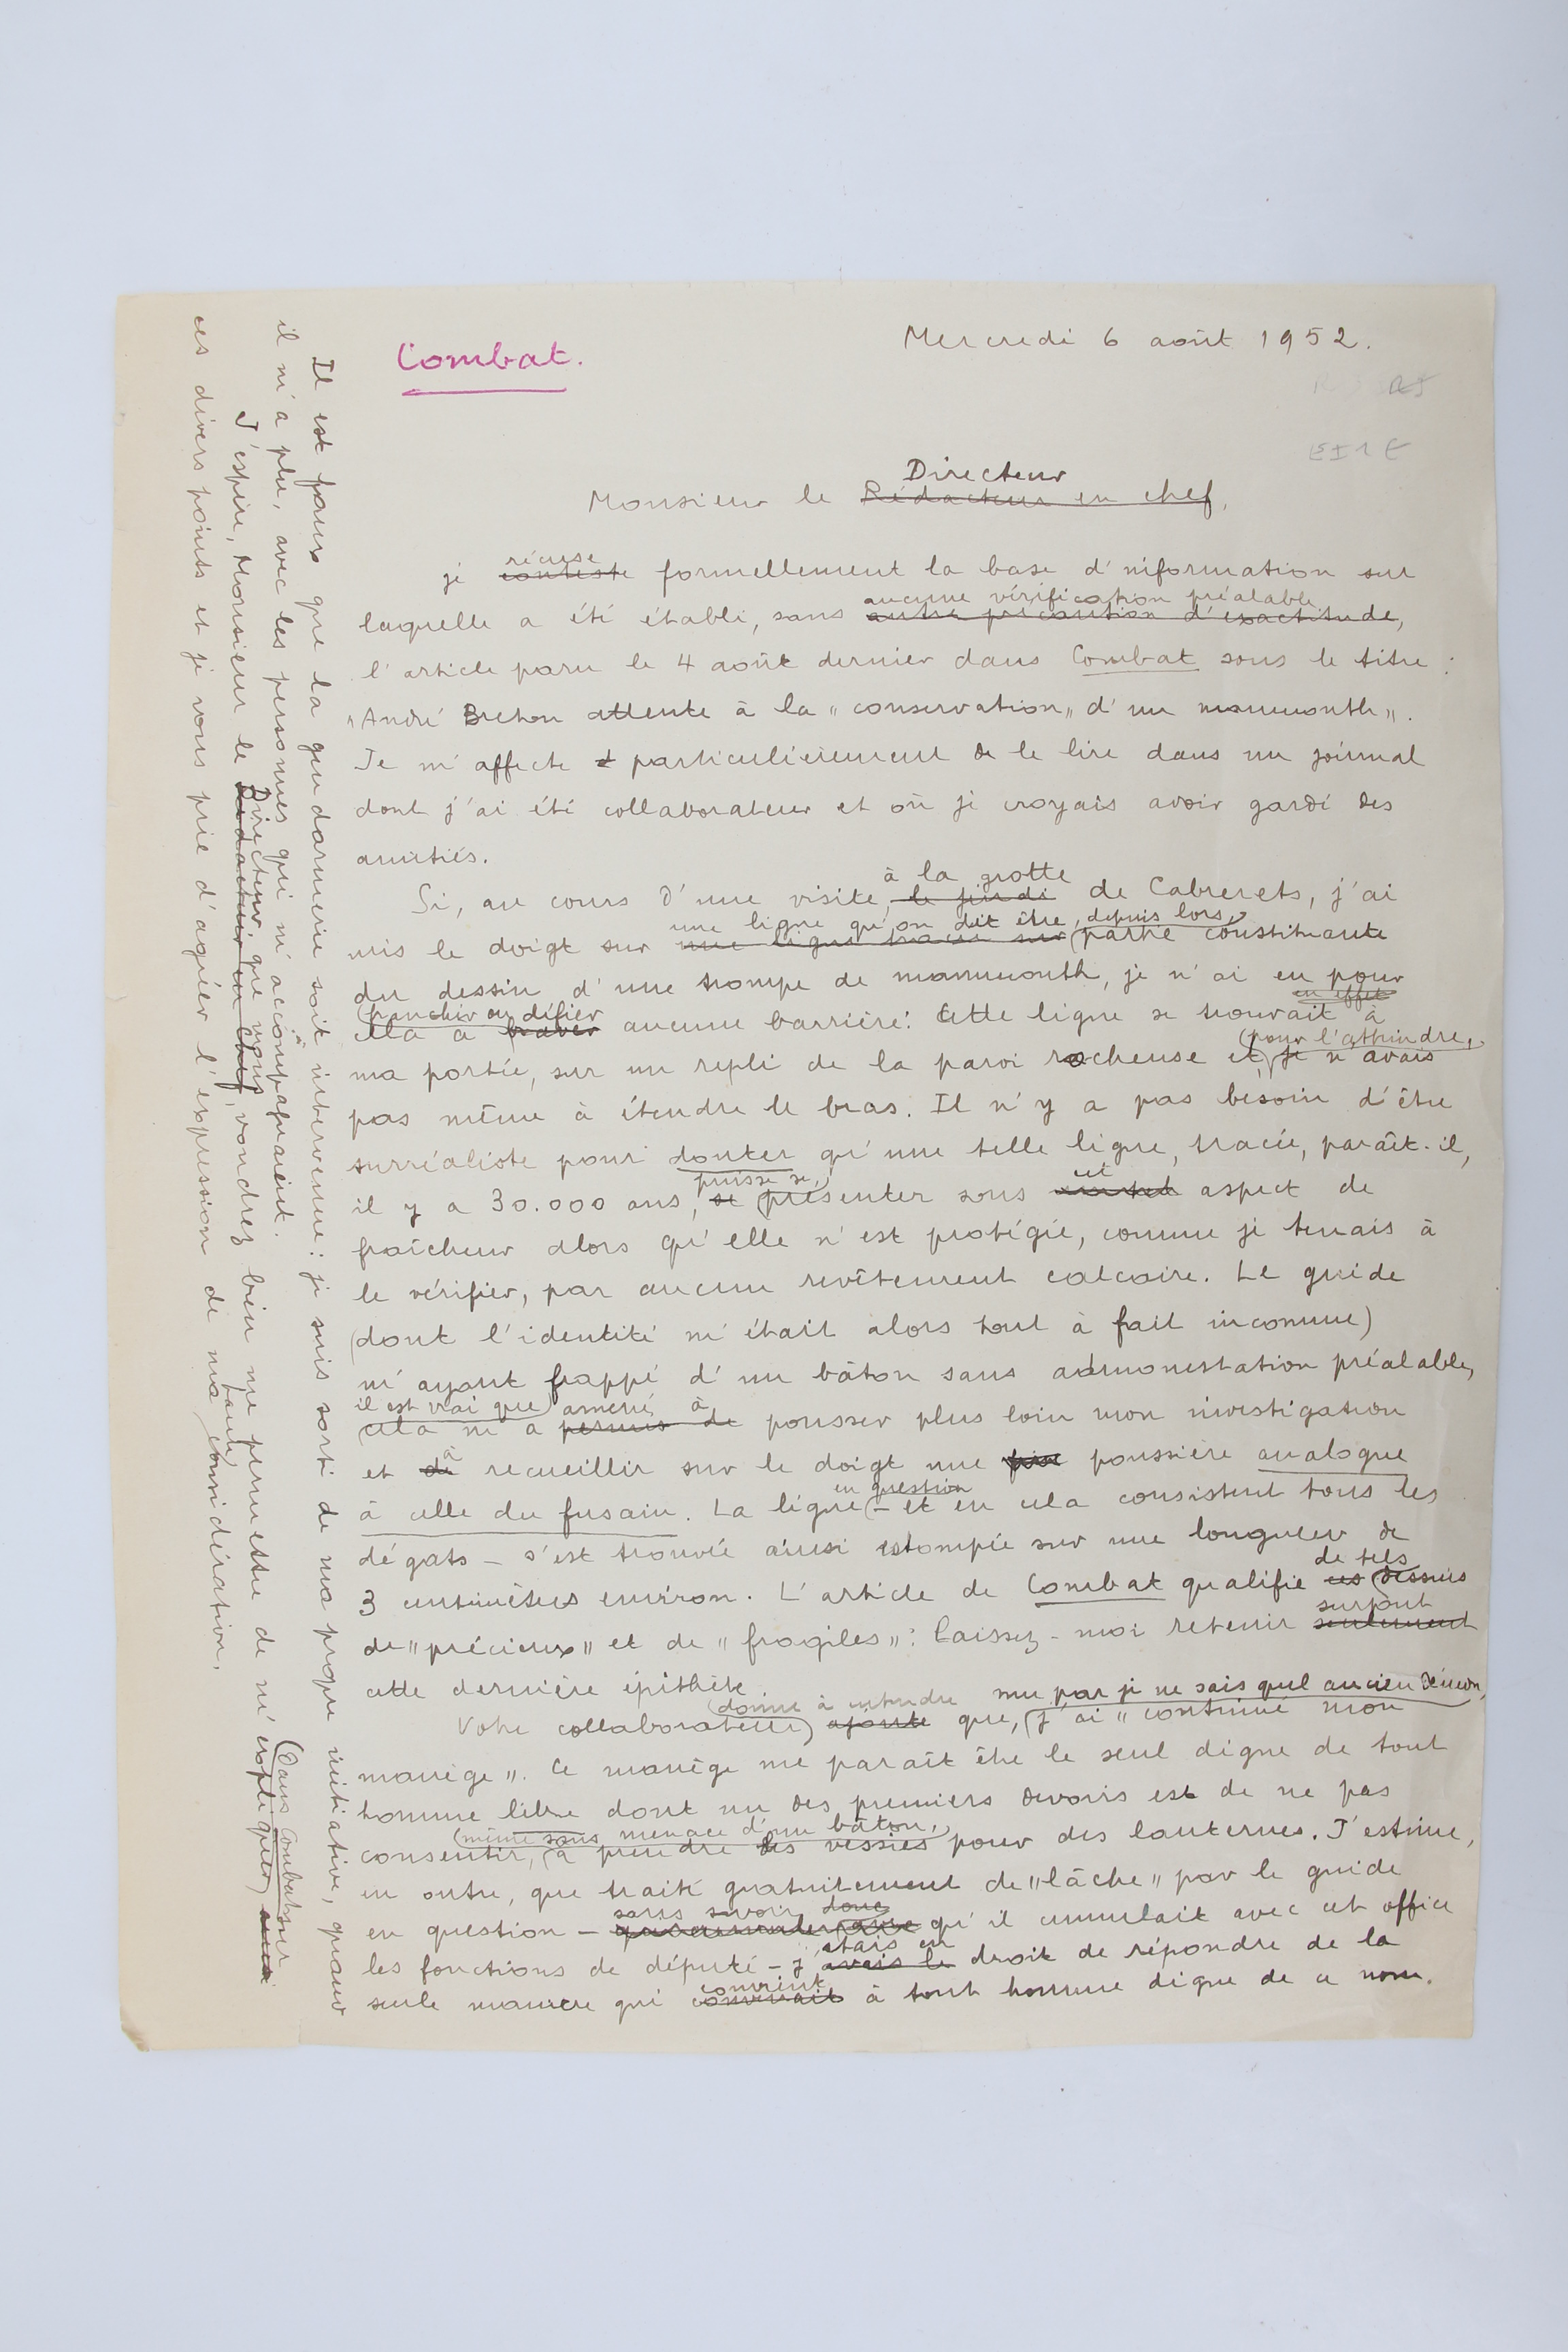 Combat.
Mercredi 6 août 1952.
Directeur
Monsieur le Rédacteur en chef,
récuse
je conteste formellement la base d'information sur
aucune vérification préalable
laquelle a été établi, sans autre précaution d'exactitude,
l'article paru le 4 août dernier dans Combat sous le titre :
"André Breton attente à la "conservation" d'un mammouth".
Je m'affecte particulièrement de le lire dans un journal
dont j'ai été collaborateur et où je croyais avoir gardé des
amitiés.
à la grotte
Si, au cours d'une visite, le jeudi de Cabrerets, j'ai
une ligne qu'on dit être, depuis lors,
mis le doigt sur une ligne tracée sur partie constituante
du dessin d'une trompe de mammouth, je n'ai eu pour
franchir ou défier en effet
cela à braver aucune barrière : Cette ligne se trouvait à
(pour l'atteindre,
ma portée, sur un repli de la paroi rocheuse et, je n'avais
pas même à étendre le bras. Il n'y a pas besoin d'être
surréaliste pour douter qu'une telle ligne, tracée, paraît-il,
puisse se cet
il y a 30.000 ans, se présenter sous aspect de
fraîcheur alors qu'elle n'est protégée, comme je tenais à
le vérifier, par aucun revêtement calcaire. Le guide
(dont l'identité m'était alors tout à fait inconnue)
m'ayant frappé d'un bâton sans admonestation préalable,
il est vrai que amené à
cela m'a permis de pousser plus loin mon investigation
à
et de recueillir sur le doigt une fine poussière analogue
en question
à celle du fusain. La ligne - et en cela consistent tous les
dégats - s'est trouvée ainsi estompée sur une longueur de
de tels
3 centimètres environ. L'article de Combat qualifie ces dessins
surtout
de "précieux" et de "fragiles" : laissez-moi retenir seulement
cette dernière épithète.
(donne à entendre mu par je ne sais quel ancien démon,
Votre collaborateur) ajoute que, (j'ai "continué mon
manège". Ce manège me paraît être le seul digne de tout
homme libre dont un des premiers devoirs est de ne pas
(même sous menace d'un bâton,
consentir, à prendre des vessies pour des lanternes. J'estime,
en outre, que traité gratuitement de "lâche" par le guide
sans savoir donc
en question - qu'il cumulait avec cet office
étais en
les fonctions de député - j'avais le droit de répondre de la
convient
seule manière qui convenait à tout homme digne de ce nom.
Il est faux que la gendarmerie soit intervenue : je suis sorti de ma propre initiative, quand
il m'a plu, avec les personnes qui m'accompagnaient.
Directeur, que vous (dans Combat sur
J'espère, Monsieur le Rédacteur en chef, voudrez bien me permettre de m'expliquer
toute
ces divers points et je vous prie d'agréer l'expression de ma considération,